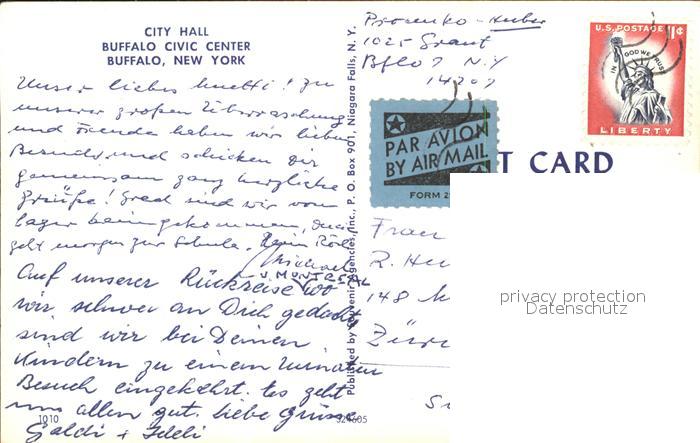 CITY HALL
BUFFALO CIVIC CENTER
BUFFALO, NEW YORK
Unser liebes Muetti! Zu
unserer grossen Überraschung
und Freude haben wir lieben
Besuch und schicken Dir
gemeinsam ganz herzliche
Grüße! Grad sind wir vom
Lager heimgekommen,
geht morgen zur Schule. Dein
Michael
Auf unserer Rückreise v. MONTREAL wo
wir schwer an Dich gedacht
sind wir bei Deinen
Kindern zu einem
Besuch eingekehrt. Es geht
uns allen gut. Liebe Grüsse
Goldi +
1010
324605
Published by Souvenir Agencies, Inc., P. O. Box 901, Niagara Falls, N. Y.
Prosenko-Huber
1025 Grant
Bflo 7 N.Y
14207
PAR AVION
BY AIR MAIL
FORM 2
U.S. POSTAGE 11¢
IN GOD WE TRUST
LIBERTY
T CARD
Frau
R. Hu
148 M
Züri
privacy protection
Datenschutz